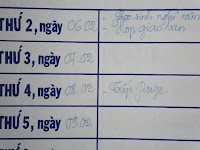 THỨ 2, ngày 06.02
- Học sinh nghỉ
- Họp giáo ban
THỨ 3, ngày 07.02
THỨ 4, ngày 08.02
THỨ 5, ngày 09.02